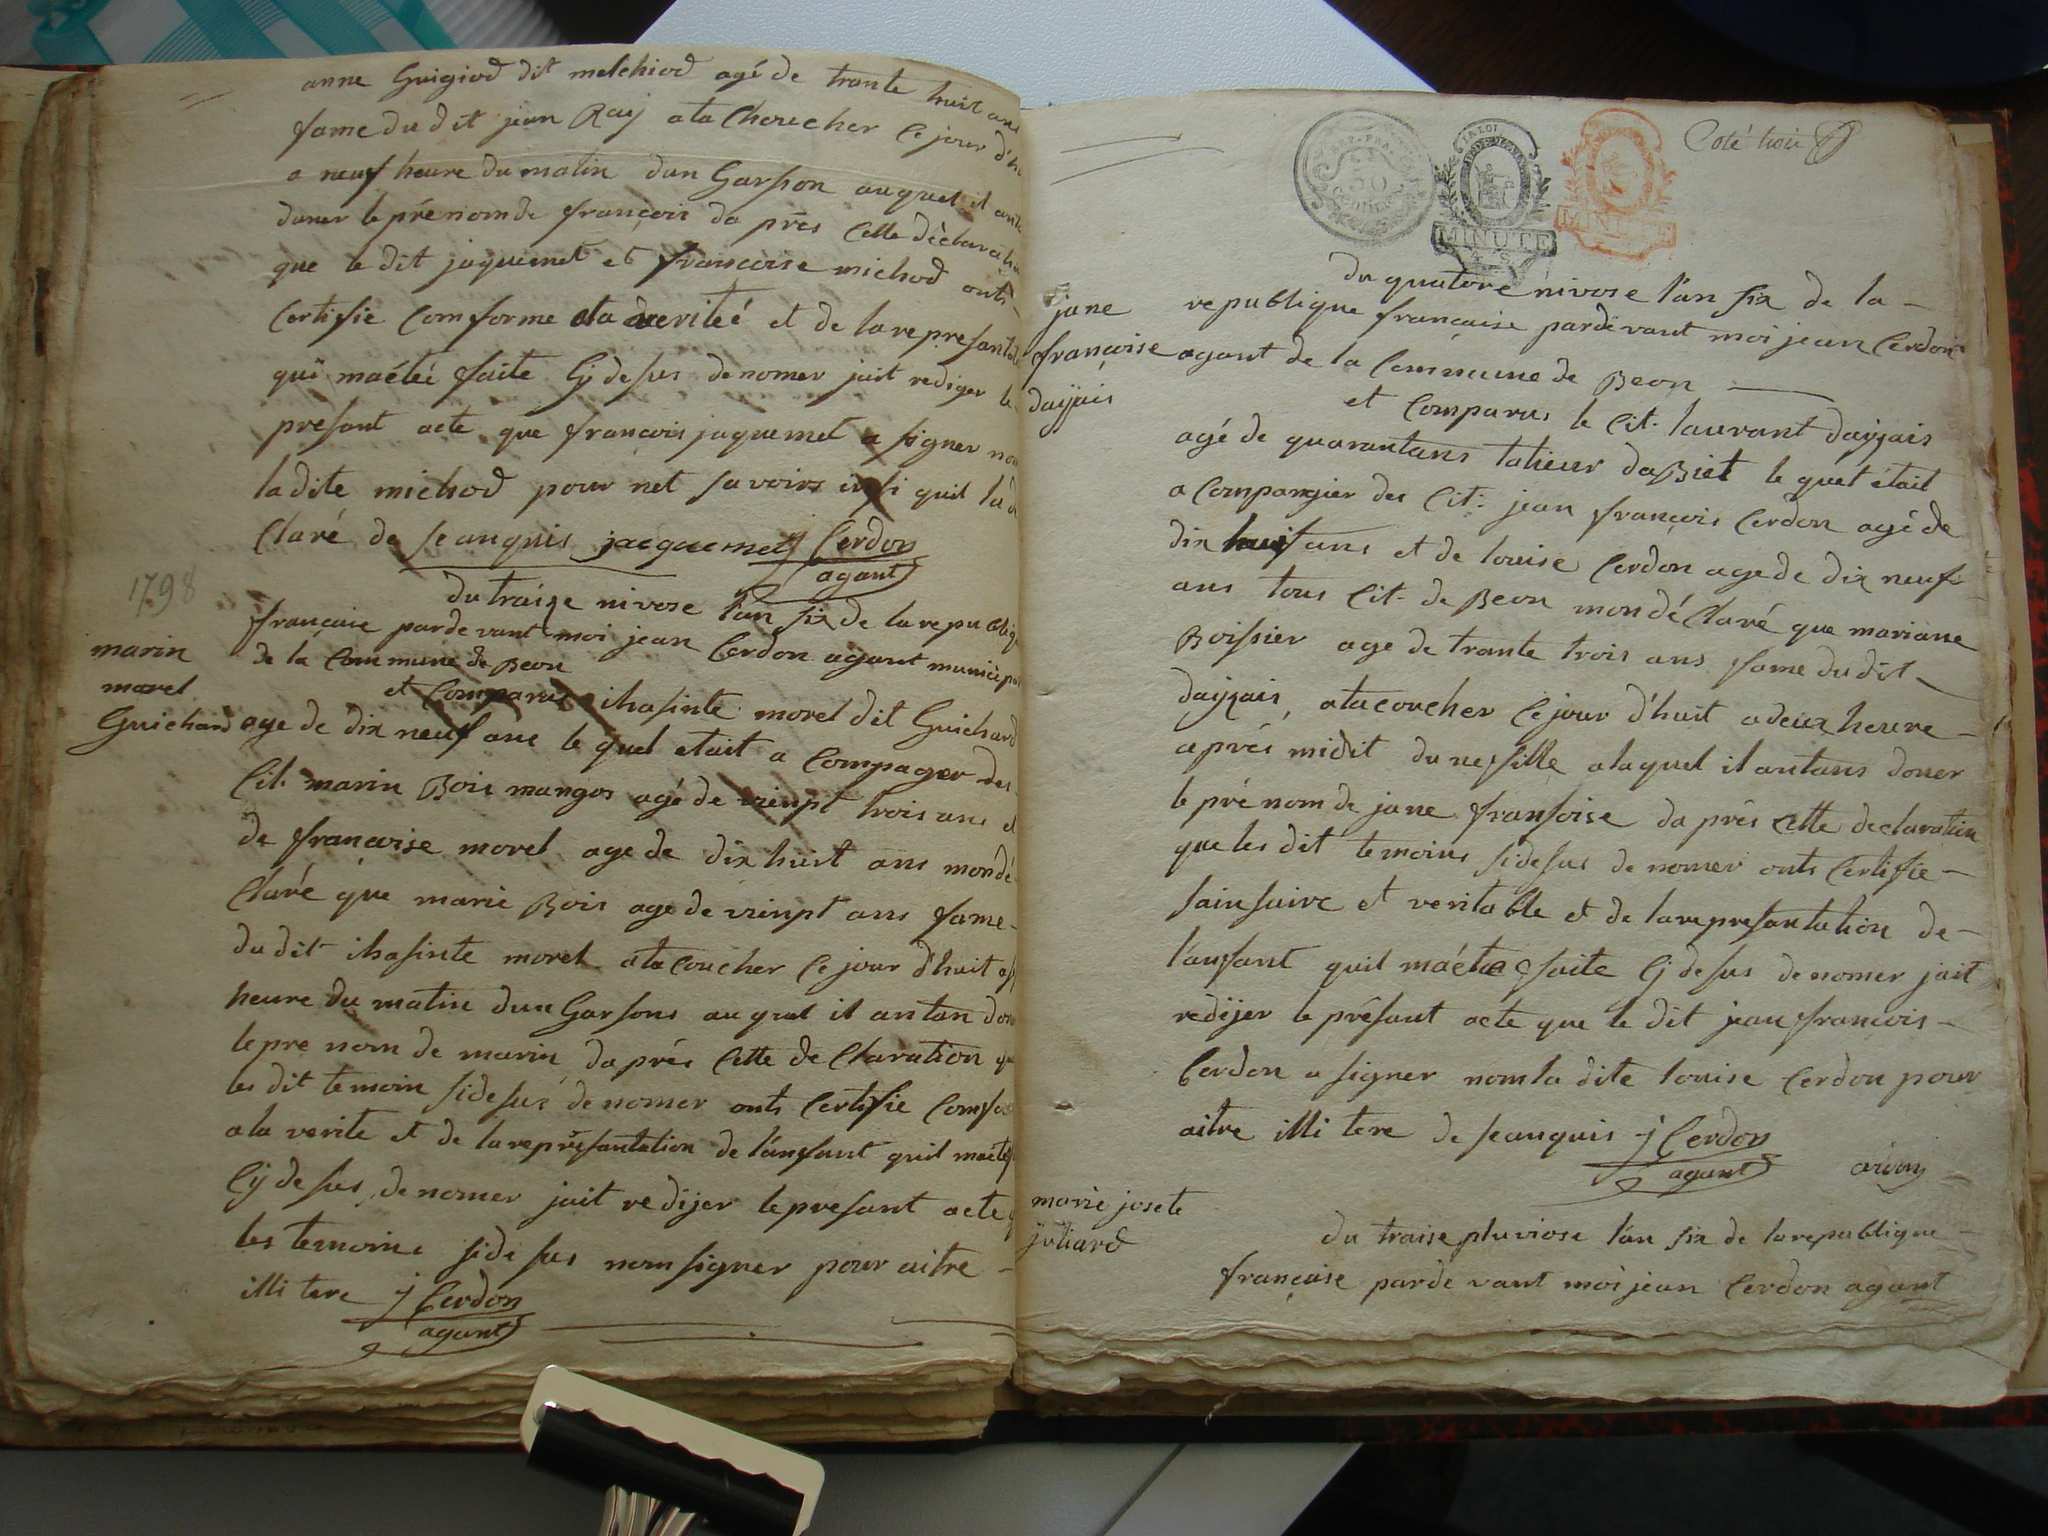 anne Guigiod dit melchiod agé de trante huit ans
fame du dit jean Ray a ta Choucher Ce jour d'hui
a neuf heure du matin dun Garſson auquel il antan
doner le prénom de françois da près Cette déclaration
que le dit jaquemet et francoise michod onts
Certifie Comforme ala verité et de la represantation
qui maétéé faite Cj desus denomer jait rediger le
presant acte que francois jaquemet a signer non
la dite michod pour net savoirs insi quil la dé
Claré de seanquis jacquemet j Cerdon
agant
1798
du traize nivose l'an six de la republique
française pardevant moi jean Cerdon agant municipal
de la Commune de Beon
marin
morel
Guichard
et Comparus ihasinte morel dit Guichard
age de dix neuf ans le quel etait a Compager des
Cit. marin Bois mangos agé de vzinpt trois ans et
de francoise morel age de dix huit ans mondé
Claré que marie Bois age de vzinpt ans fame
du dit ihasinte morel ata Coucher Ce jour d'huit
heure du matin dun Garsons au quel il antan doner
le pre nom de marin da prés Cette de Claration que
les dit temoin sidesus de nomer onts Certifie Comforme
a la verite et de la représantation de l'ansant quil maété
Cj desus denomer jait redijer le presant acte
les temoins side sus nom signer pour aitre
illi tere j Cerdon
agant
Coté trois
REP. FRA.
50
Centimes
LA LOI
MINUTE
du quatore nivose l'an six de la
jane
françoise
dayzais
republique française pardevant moi jean Cerdon
agant de la Commune de Beon
et Comparus le Cit. lauvant dayzais
agé de quarantans talieur dabiet le quel était
a Compangier des Cit. jean francois Cerdon agé de
dix huit ans et de louise Cerdon age de dix neuf
ans tous Cit. de Beon mondé Claré que mariane
Boissier age de trante trois ans fame du dit
dayzais, ata coucher Ce jour d'huit a deux heure
après midit du ne fille a laquel il antans doner
le pré nom de jane fransoise da près Cette declaration
que les dit temoins sidesus de nomer onts Certifie
sainsaire et veritable et de la represantation de
l'ansant quil maétéé faite Cj desus denomer jait
redijer le présant acte que le dit jean françois
Cerdon a signer nom la dite louise Cerdon pour
aitre illi tere de seanquis j Cerdon
agant
marie josete
juliard
du traise pluviose l'an six de la republique
française parde vant moi jean Cerdon agant